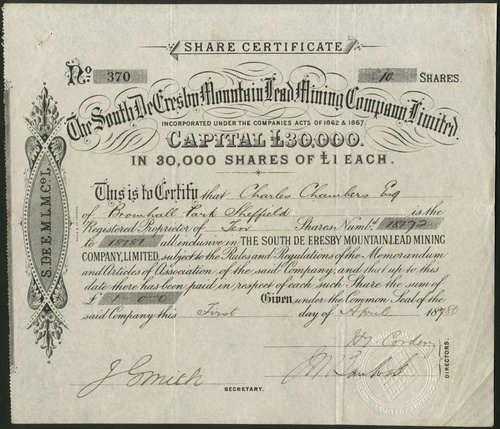 SHARE CERTIFICATE
No. 370
10 SHARES.
The South De Eresby Mountain Lead Mining Company, Limited.
INCORPORATED UNDER THE COMPANIES ACTS OF 1862 & 1867.
CAPITAL £30,000.
IN 30,000 SHARES OF £1 EACH.
This is to Certify that Charles Chambers Esq
of Broomhall Park Sheffield is the
Registered Proprietor of Ten Shares, Numbd. 18172
to 18181 all inclusive in THE SOUTH DE ERESBY MOUNTAIN LEAD MINING
COMPANY, LIMITED, subject to the Rules and Regulations of the Memorandum
and Articles of Association of the said Company; and that up to this
date there has been paid in respect of each such Share the sum of
£ 1-0-0 Given under the Common Seal of the
said Company this First day of April 1880
S. DE E. M. L. M. Co. L.
J Smith
SECRETARY.
DIRECTORS.